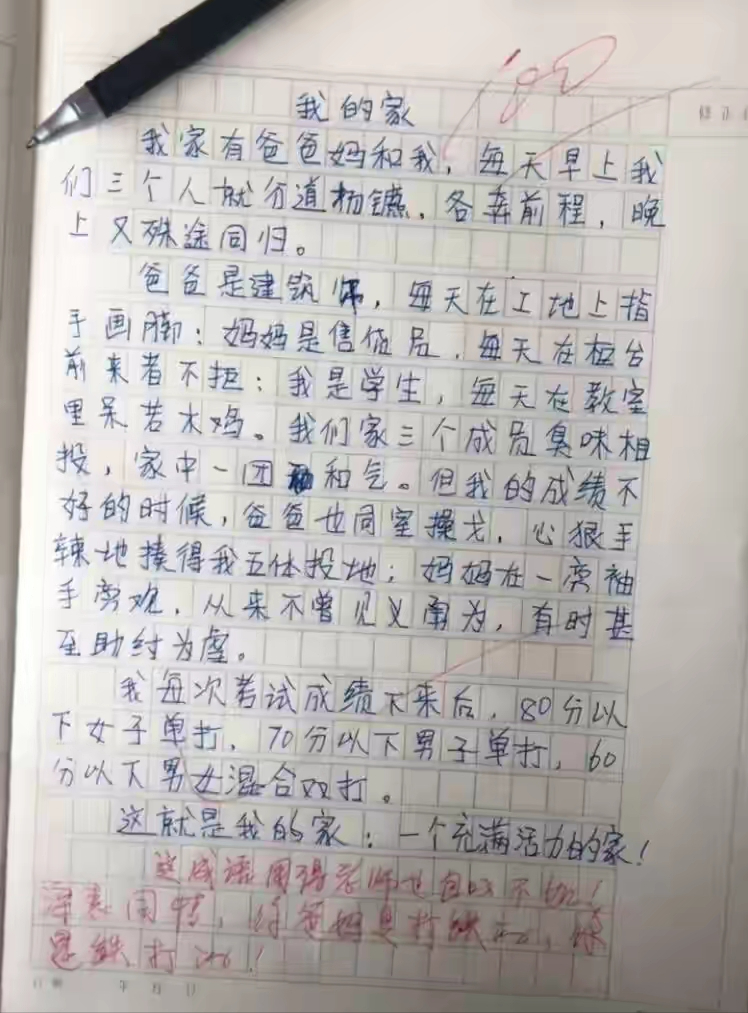 100
修正
我的家
我家有爸爸妈和我，每天早上我
们三个人就分道杨镳，各奔前程，晚
上又殊途同归。
爸爸是建筑师，每天在工地上指
手画脚；妈妈是售货员，每天在柜台
前来者不拒；我是学生，每天在教室
里呆若木鸡。我们家三个成员臭味相
投，家中一团和气。但我的成绩不
好的时候，爸爸也同室操戈，心狠手
辣地揍得我五体投地；妈妈在一旁袖
手旁观，从来不曾见义勇为，有时甚
至助纣为虐。
我每次考试成绩下来后，80分以
下女子单打，70分以下男子单打，60
分以下男女混合双打。
这就是我的家：一个充满活力的家！
这成语用得老师也自叹不如！
同情，你爸妈是打铁的，你
是铁打的！
日期 年 月 日